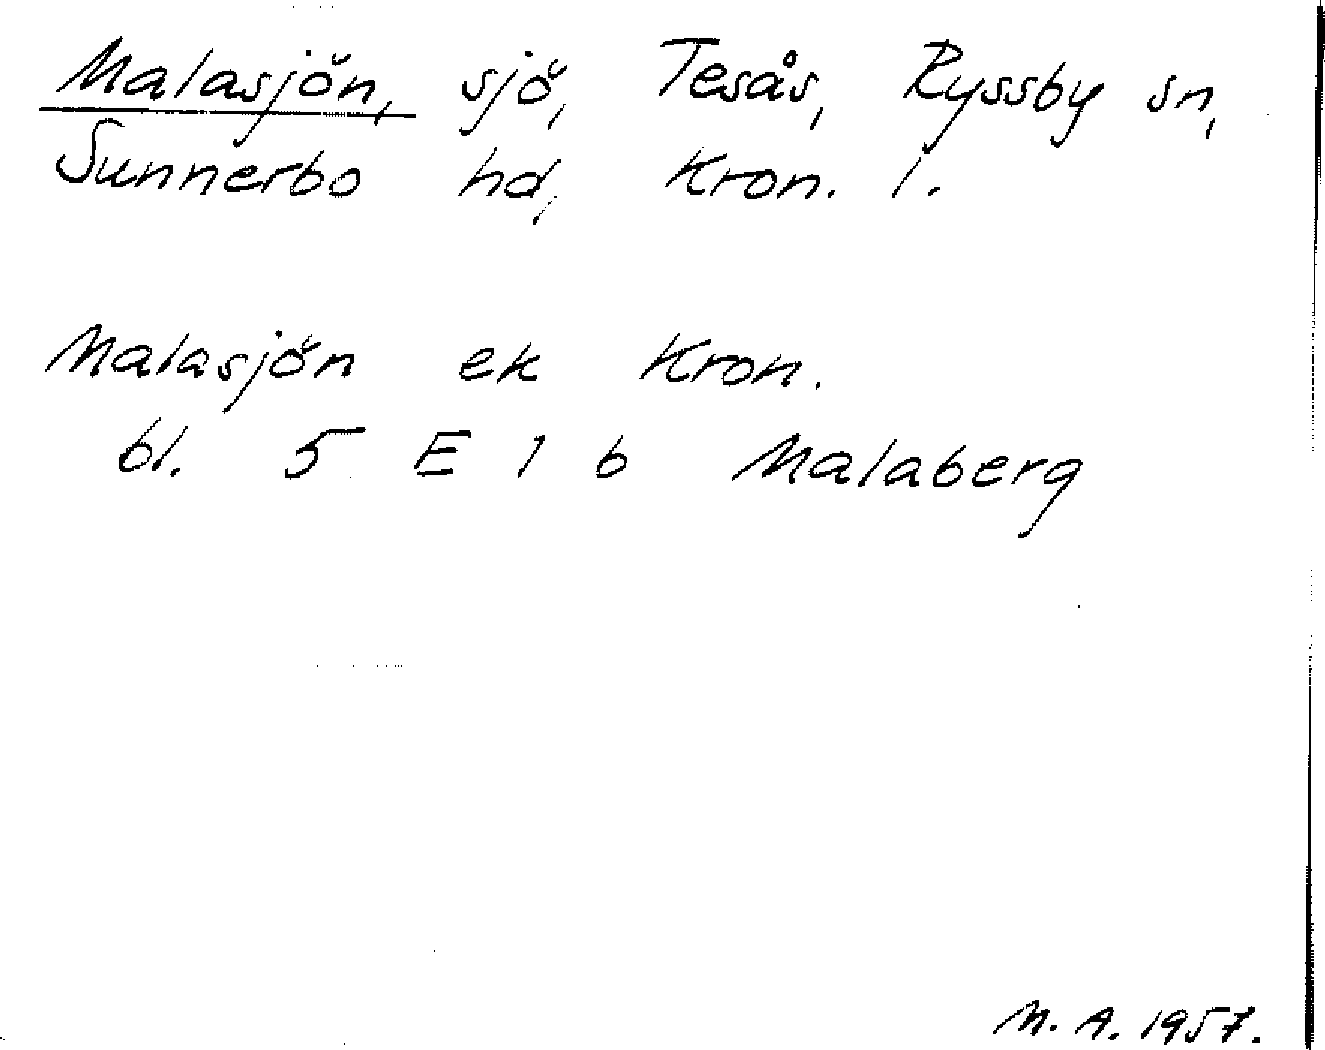 Malasjön, sjö, Tesås, Ryssby sn,
Sunnerbo hd, Kron. l.
Malasjön ek Kron.
bl. 5 E 1 b Malaberg
M. A. 1957.